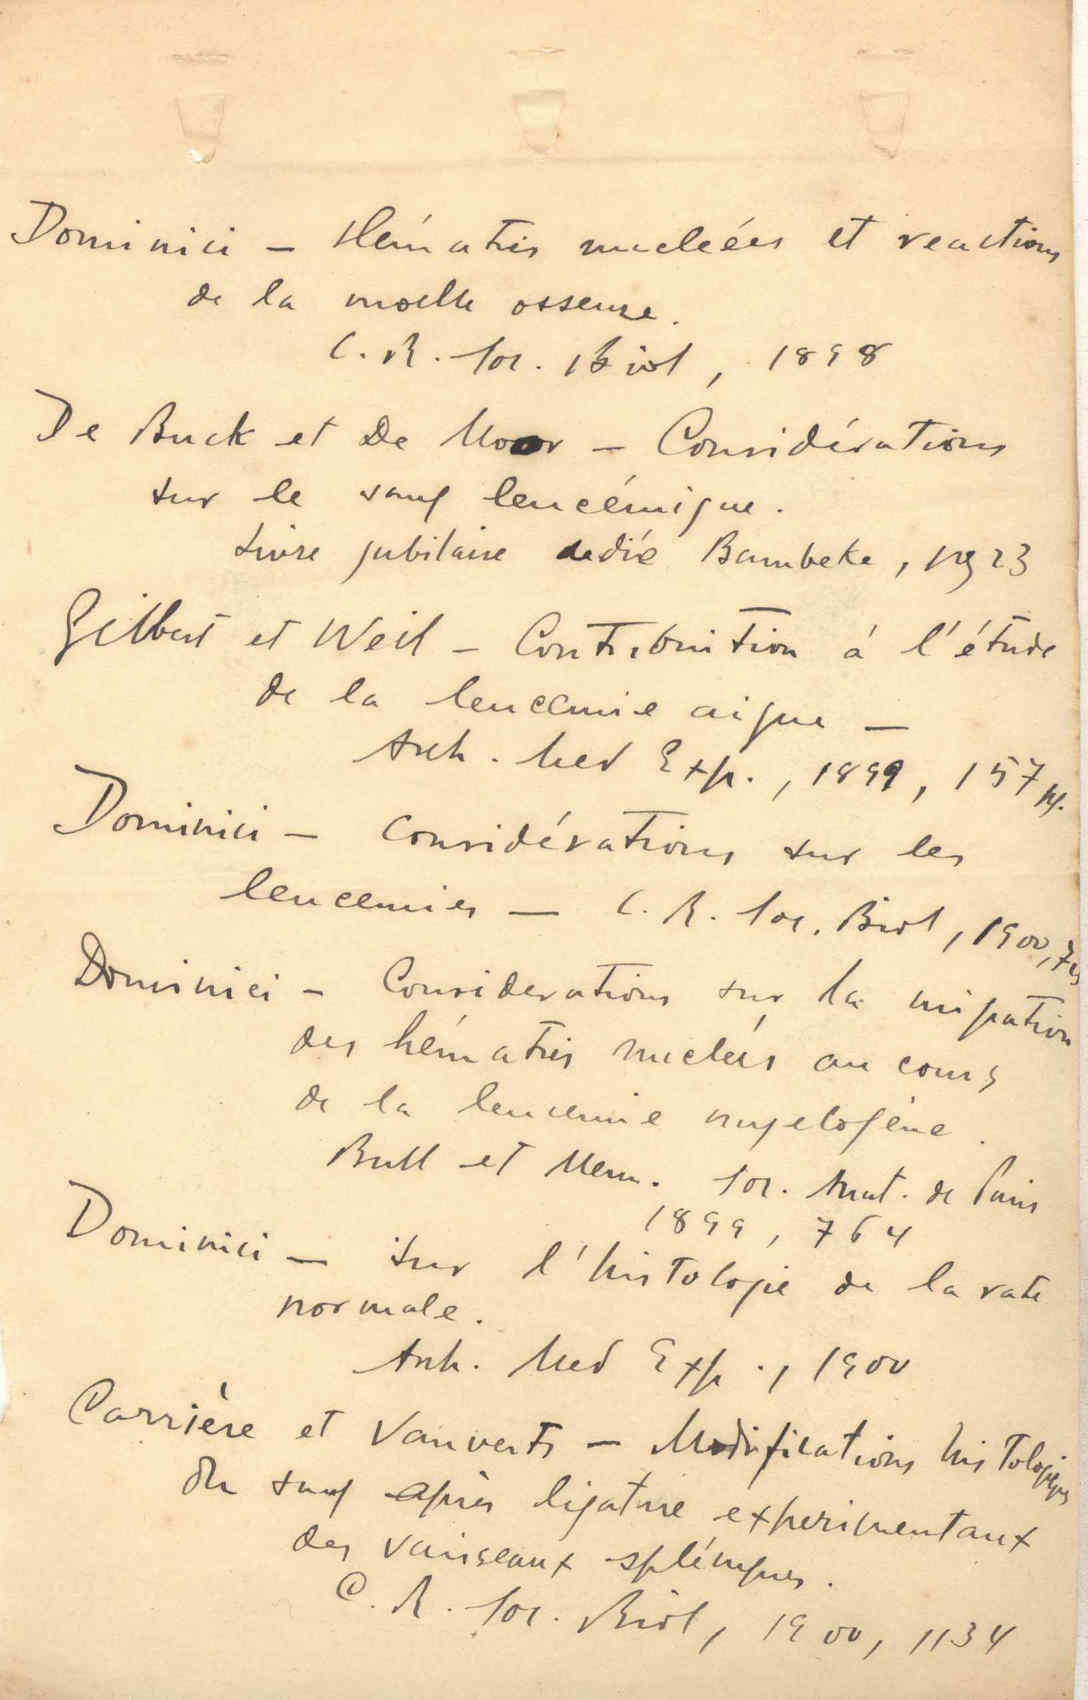 Dominici – Hématies nucléées et reactions
de la moelle osseuse.
C. R. Soc. Biol, 1898
De Buck et De Moor – Considérations
sur le sang leucémique.
Livre jubilaire dedié Bambeke, pg 23
Gilbert et Weil – Contribution à l'étude
de la leucemie aigue –
Arch. Med Exp., 1899, 157 pg.
Dominici – Considérations sur les
leucemies – C. R. Soc. Biol, 1900,
Dominici – Considerations sur la migration
des hématies nuclées au cours
de la leucemie myelogène.
Bull et Mem. Soc. Anat. de Paris
1899, 764
Dominici – Sur l'histologie de la rate
normale.
Arch. Med Exp., 1900
Carrière et Vanverts – Modifications histologiques
du sang après ligature experimentaux
des vaisseaux spléniques.
C. R. Soc. Biol, 1900, 1134